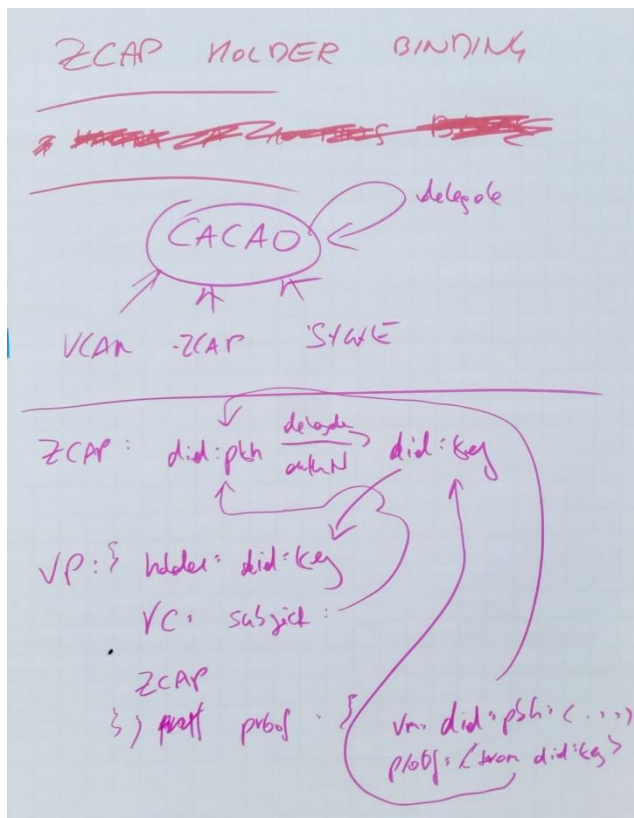 ZCAP HOLDER BINDING
delegate
CACAO
UCAN ZCAP SIWE
ZCAP: did:pkh delegate authN did:key
VP: { holder: did:key
VC: subject:
ZCAP
}, proof: {
vm: did:pkh:<...>
proof: <from did:key>